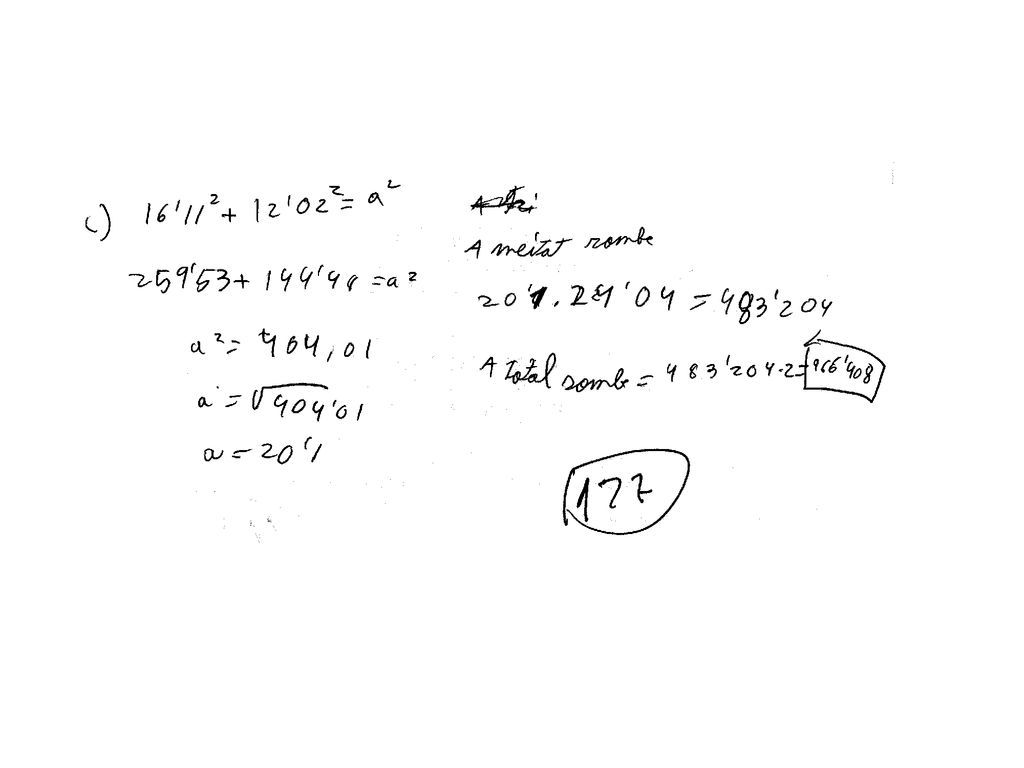 c) 16'11² + 12'02² = a²
259'53 + 144'48 = a²
a² = 404,01
a = √404'01
a = 20'1
A meitat rombe
20'1 . 24'04 = 483'204
A total rombe = 483'204.2 = 966'408
177